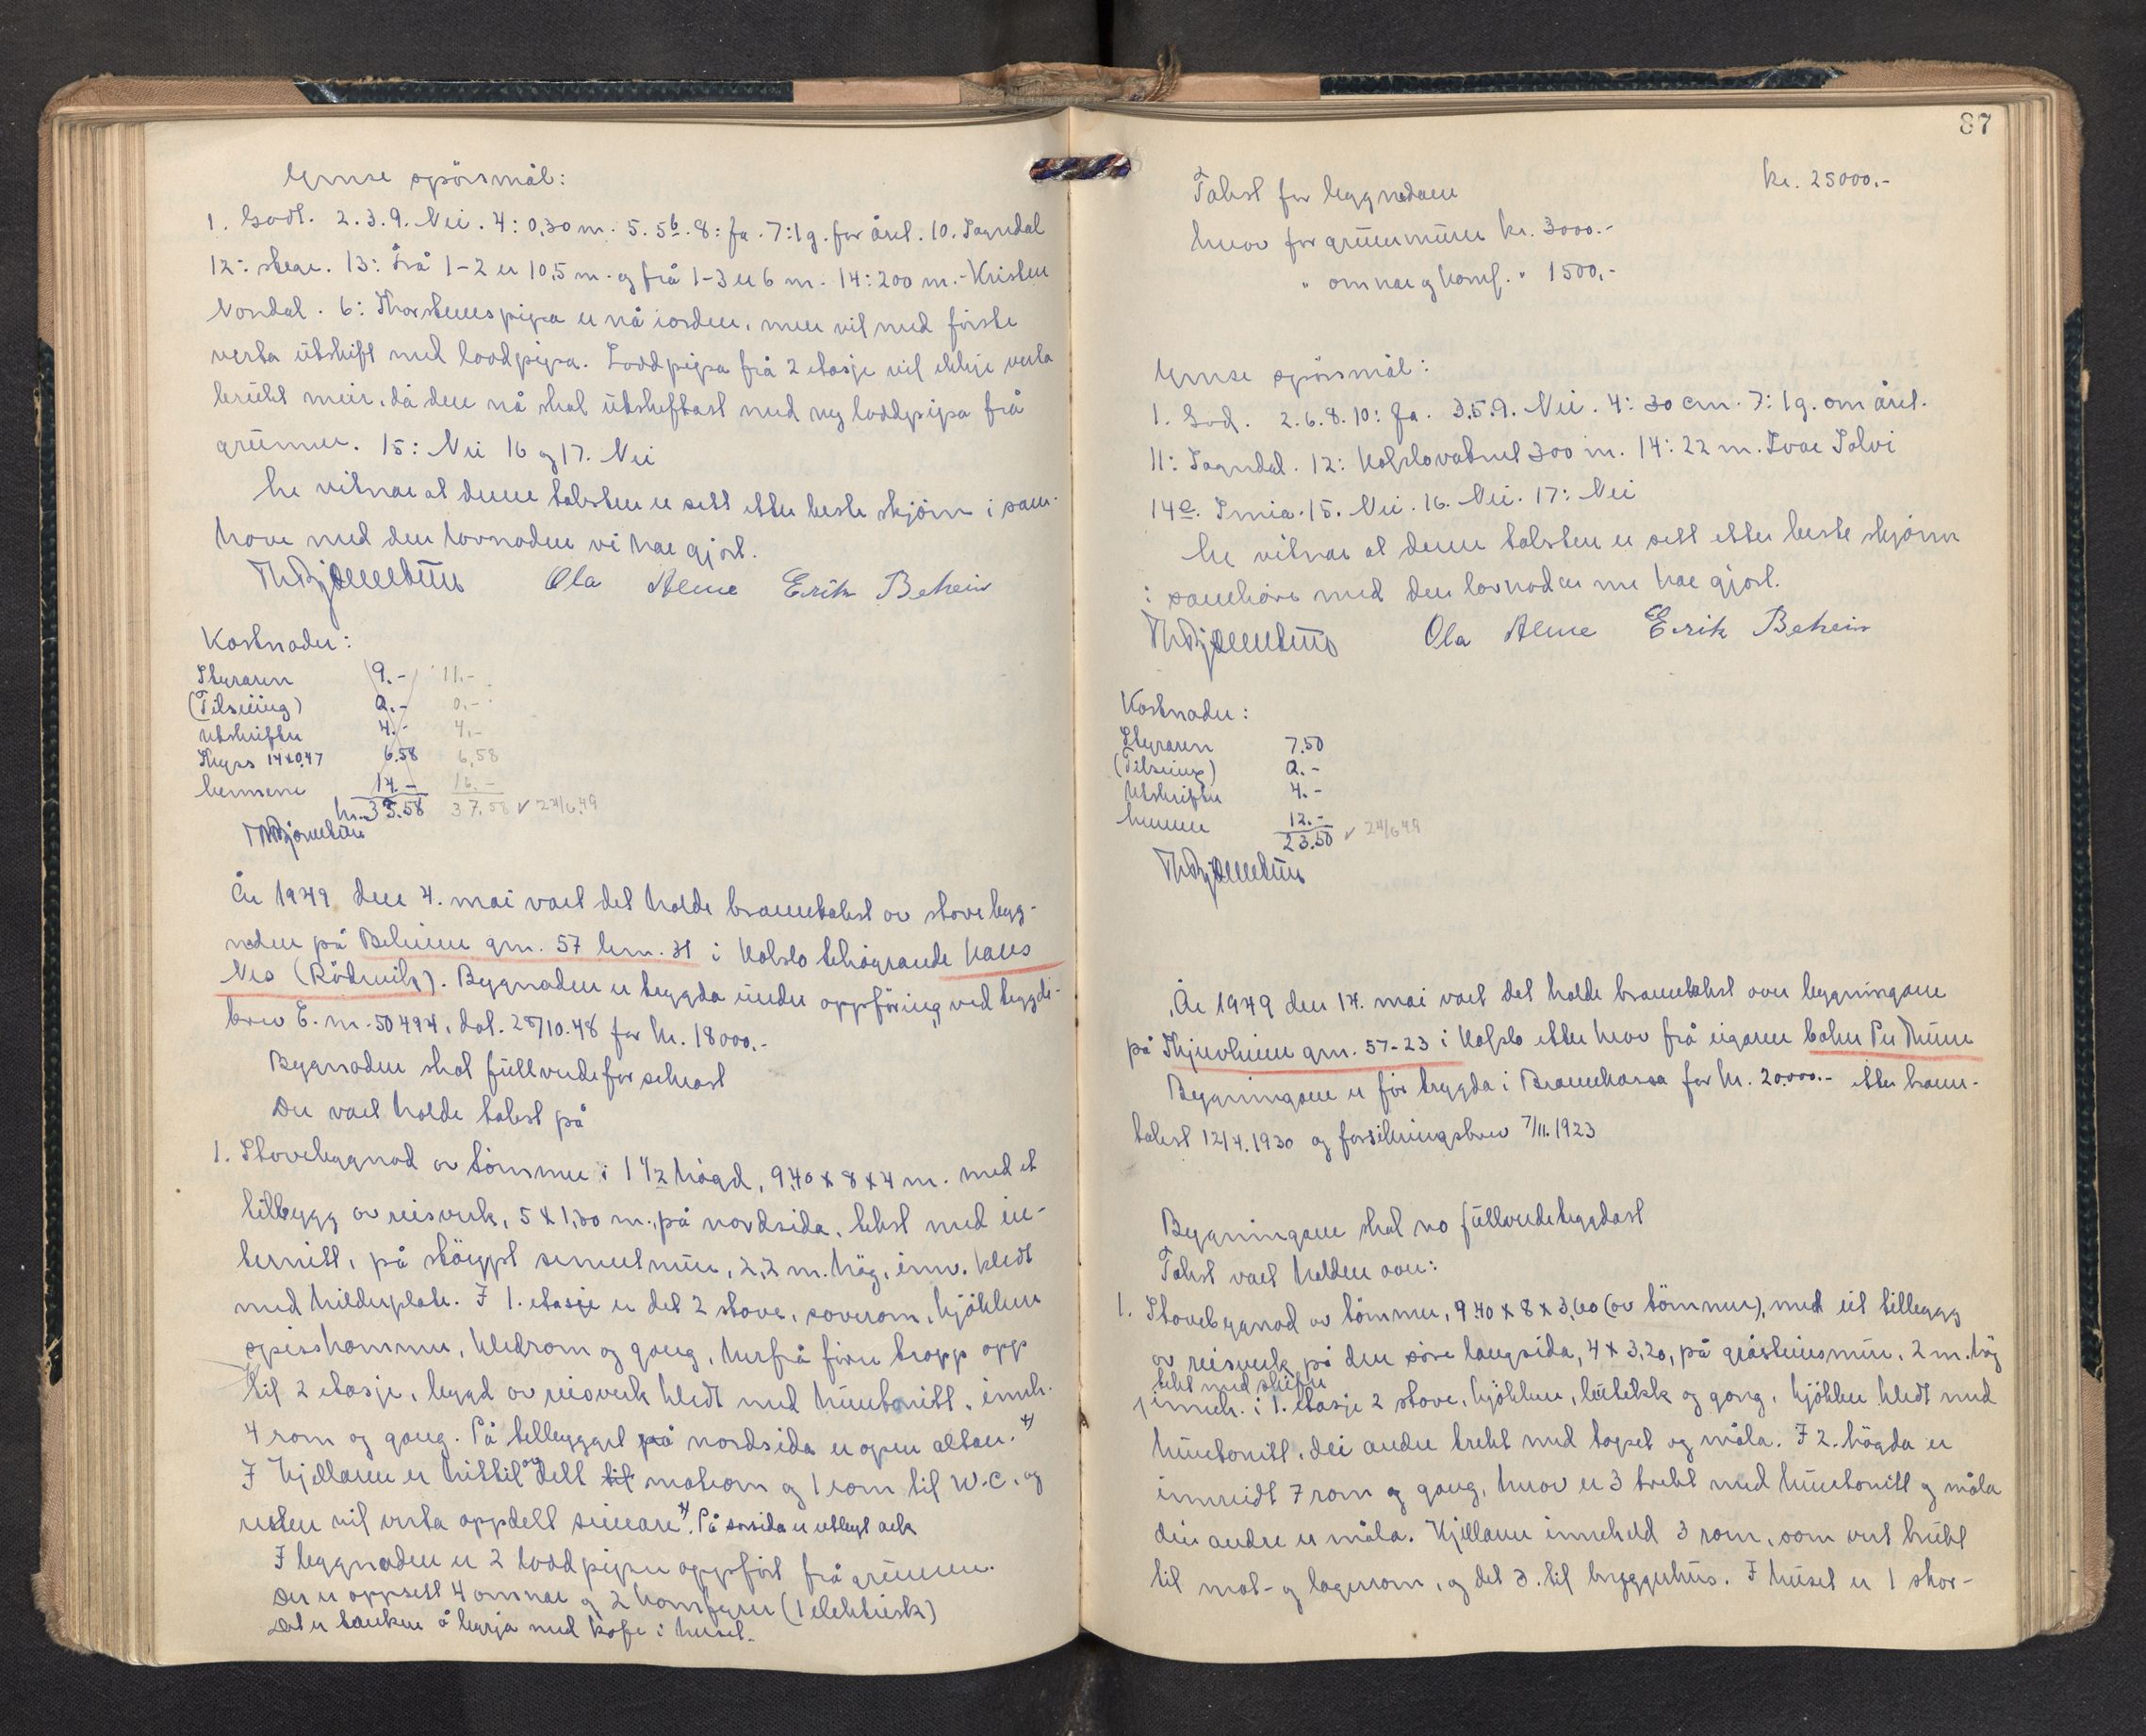 Ymse spörsmål:
1. Godt. 2.3.9. Nei. 4: 0,30 m. 5. 5b. 8: Ja. 7: 1 g. for året. 10. Sogndal
12: 13: Frå 1-2 er 10,5 m. og frå 1-3 er 6 m. 14: 200 m. - Kristen
Nondal. 6: Skorsteinspipa er nå i orden, men vil med förste
verta utskift med loddpipa. Loddpipa frå 2 etasje vil ikkje verta
brukt meir, då den nå skal utskiftast med ny loddpipa frå
grunnen. 15: Nei 16 og 17. Nei
Me vitnar at denne taksten er sett etter beste skjönn i sam-
höve med den lovnaden vi har gjort.
Ola Alme Erik Beheim
Kostnader:
Styraren 9.- 11.-
(Tilseiing) 2.- 0.-
Utskrifter 4.- 4.-
Skyss 14x0,47 6.58 6,58
Mennene 14.- 16.-
kr. 35.58 37.58 ✓ 24/6.49
År 1949 den 4. mai vart det halde branntakst av stovebyg-
naden på Beheim gnr. 57 bnr. 31 i tilhøyrande Hans
Nes (Rödvik). Bygnaden er trygda under oppföring ved trygde-
brev E. nr. 50494, dat. 28/10.48 for kr. 18000.-
Bygnaden skal fullverdeforsikrast
Der vart halde takst på
1. Stovebygnad av tömmer i 1 1/2 högd, 9.40 x 8 x 4 m. med et
tilbygg av reisverk, 5 x 1,30 m., på nordsida, tekt med in-
ternitt, på støypt sementmur, 2,2 m. høg, innv. kledt
med hilderplate. I 1. etasje er det 2 stove, soverom, kjökken
spisskammer, kledrom og gang, herfrå förer tropp opp
til 2 etasje, bygd av reisverk kledt med huntonitt, inneh.
4 rom og gang. På tilbygget på nordsida er open altan. x)
I kjellaren er hittil avdelt til matrom og 1 rom til W.C. og
resten vil verta oppdelt seinare x). På sørsida er utbygt ark
I bygnaden er 2 loddpiper oppfört frå grunnen.
Der er oppsett 4 omnar og 2 komfyrer (1 elektrisk)
Det er tanken å byrja med kafe i huset.
87
Takst for bygnaden kr. 25000.-
herav for grunnmuren kr. 3000.-
" omnar og komf. " 1500,-
Ymse spörsmål:
1. God. 2.6.8.10: Ja. 3.5.9. Nei. 4: 30 cm. 7: 1 g. om året.
11: Sogndal. 12: 300 m. 14: 22 m. Ivar Solvi
14e. Smia. 15. Nei. 16. Nei. 17: Nei
Me vitnar at denne taksten er sett etter beste skjönn
i samhöve med den lovnaden me har gjort.
Ola Alme Erik Beheim
Kostnader:
Styraren 7.50
(Tilseiing) 2.-
Utskrifter 4.-
Mennene 12.-
23.50 ✓ 24/6 49
År 1949 den 14. mai vart det halde branntakst over bygningane
på Skjervheim gnr. 57-23 i etter krav frå eigaren
Bygningane er för trygda i Brannkassa for kr. 20.000.- etter brann-
takst 12/4.1930 og forsikringsbrev 7/11.1923
Bygningane skal no fullverdetrygdast
Takst vart halden over:
1. Stovebygnad av tömmer, 9.40 x 8 x 3,60 (av tömmer), med eit tilbygg
av reisverk på den söre langsida, 4 x 3,20, på gråsteinsmur, 2 m. høg
tekt med skifer
inneh. i 1. etasje 2 stove, kjökken, og gang, kjökken kledt med
huntonitt, dei andre trekt med tapet og måla. I 2. høgda er
innreidt 7 rom og gang, herav er 3 trekt med huntonitt og måla
dei andre er måla. Kjellaren inneheld 3 rom, som vert brukt
til mat- og lagerrom, og det 3. til bryggerhus. I huset er 1 skor-